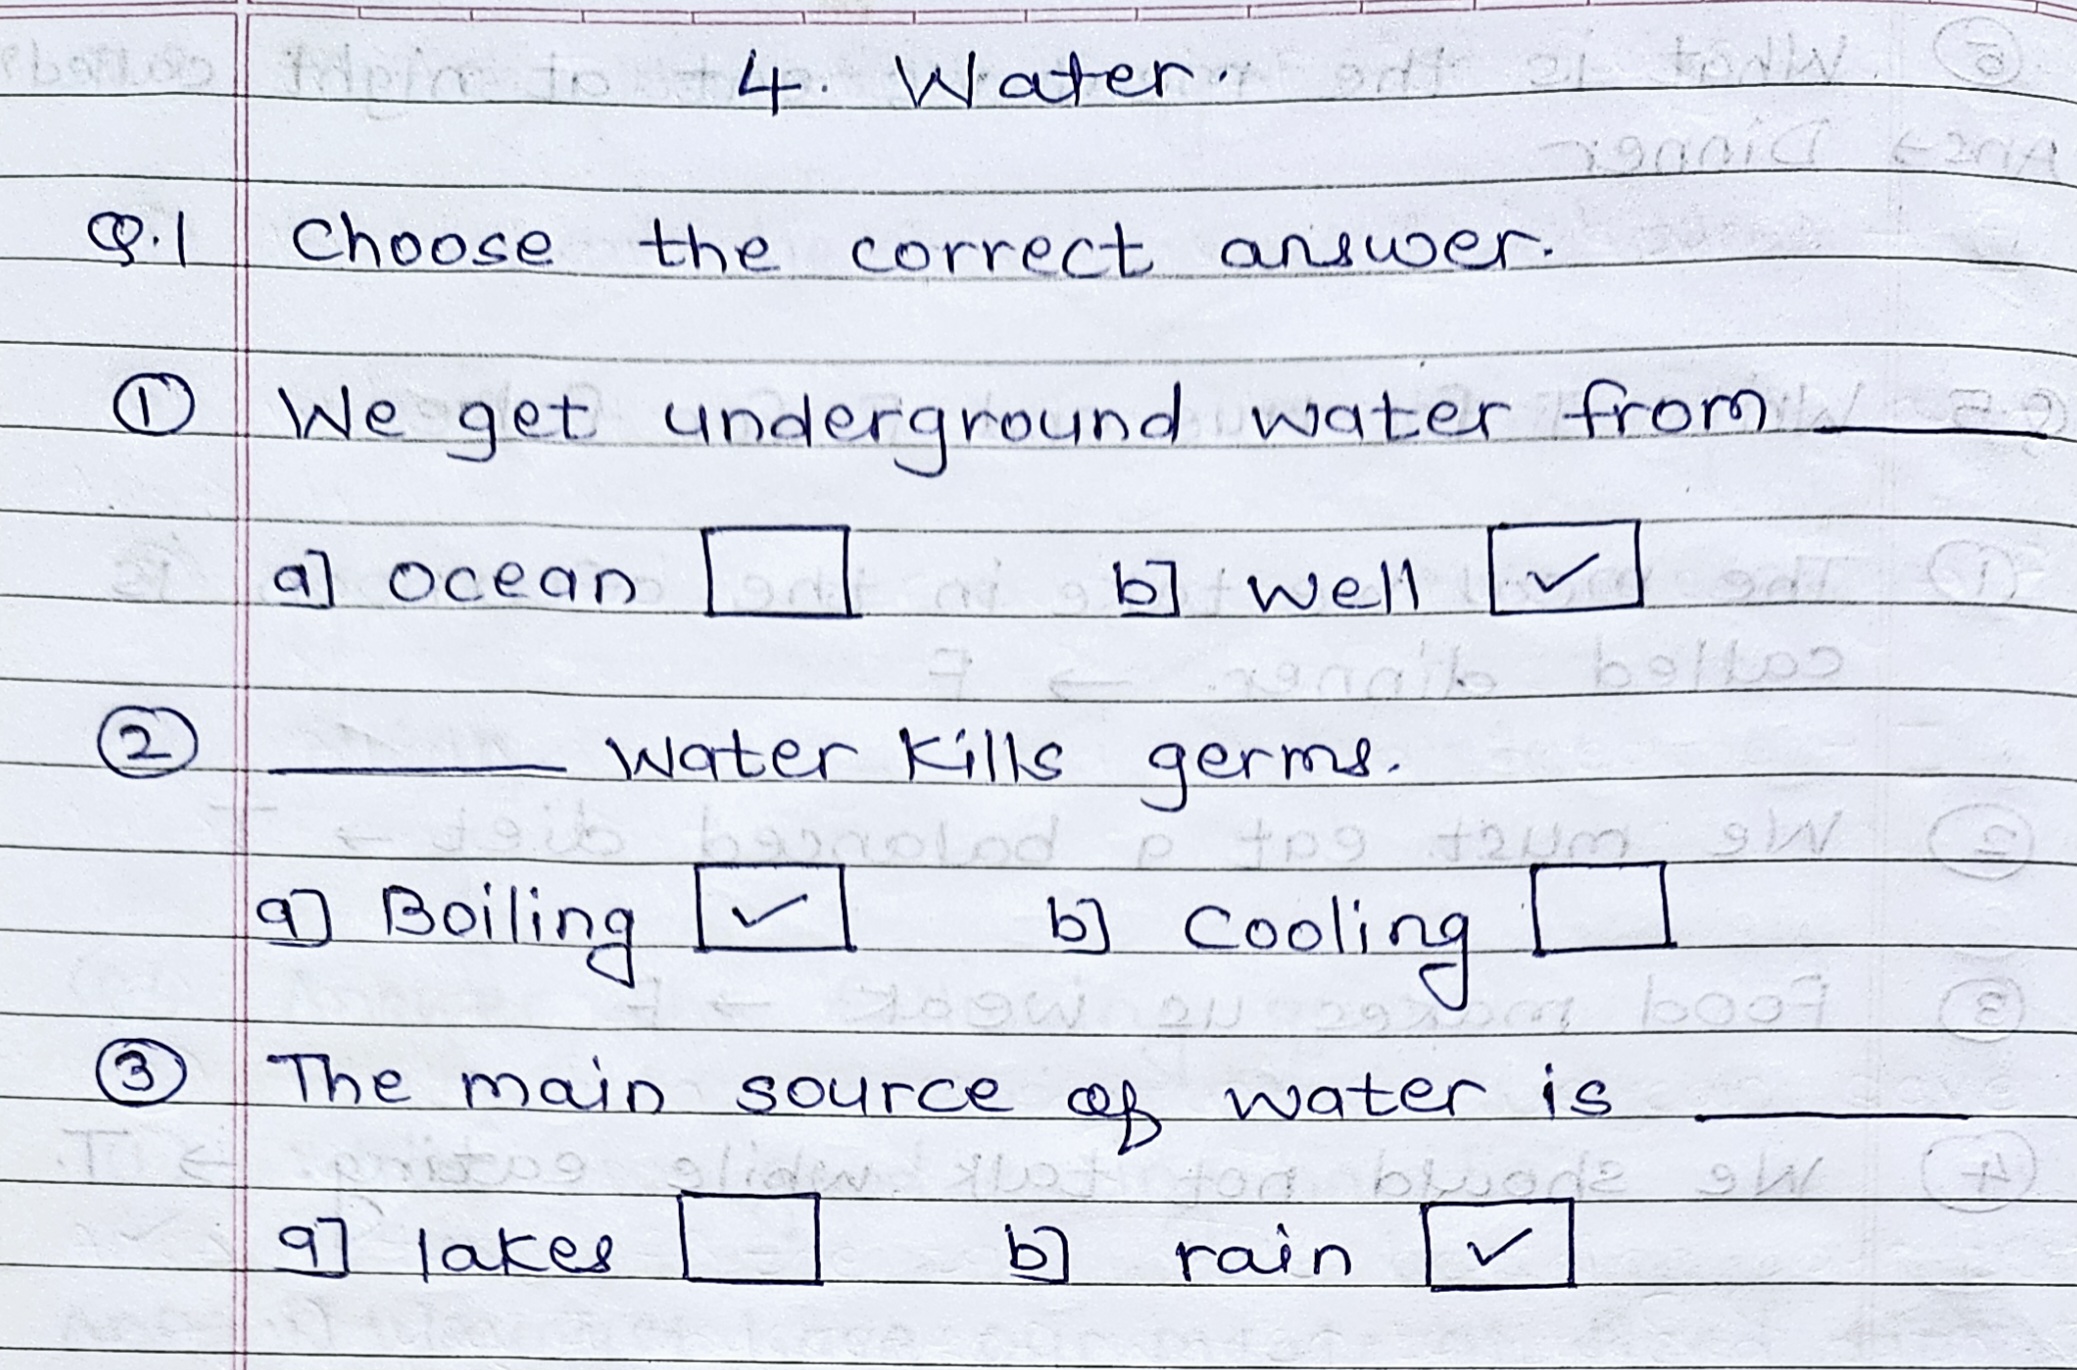 4. Water.
Q.1 Choose the correct answer.
① We get underground water from ____
a] ocean ☐ b] well ☑
② ____ water kills germs.
a] Boiling ☑ b] Cooling ☐
③ The main source of water is ____
a] lakes ☐ b] rain ☑